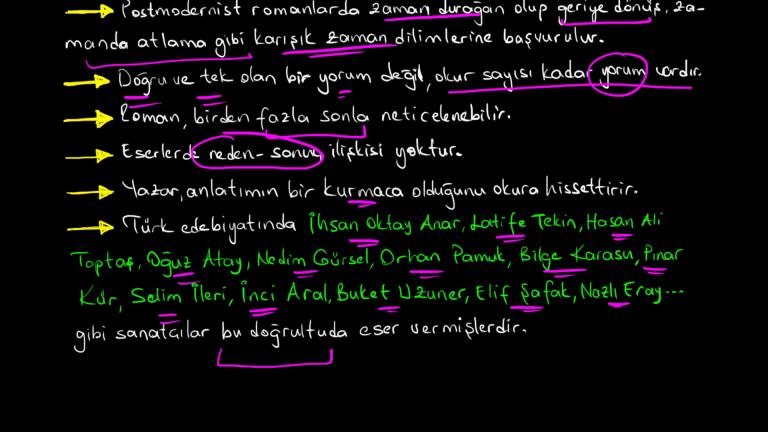 Postmodernist romanlarda zaman durağan olup geriye dönüş, za-
manda atlama gibi karışık zaman dilimlerine başvurulur.
Doğru ve tek olan bir yorum değil, okur sayısı kadar yorum vardır.
Roman, birden fazla sonla neticelenebilir.
Eserlerde neden-sonuç ilişkisi yoktur.
Yazar, anlatımın bir kurmaca olduğunu okura hissettirir.
Türk edebiyatında İhsan Oktay Anar, Latife Tekin, Hasan Ali
Toptaş, Oğuz Atay, Nedim Gürsel, Orhan Pamuk, Bilge Karasu, Pınar
Kür, Selim İleri, İnci Aral, Buket Uzuner, Elif Şafak, Nazlı Eray...
gibi sanatçılar bu doğrultuda eser vermişlerdir.